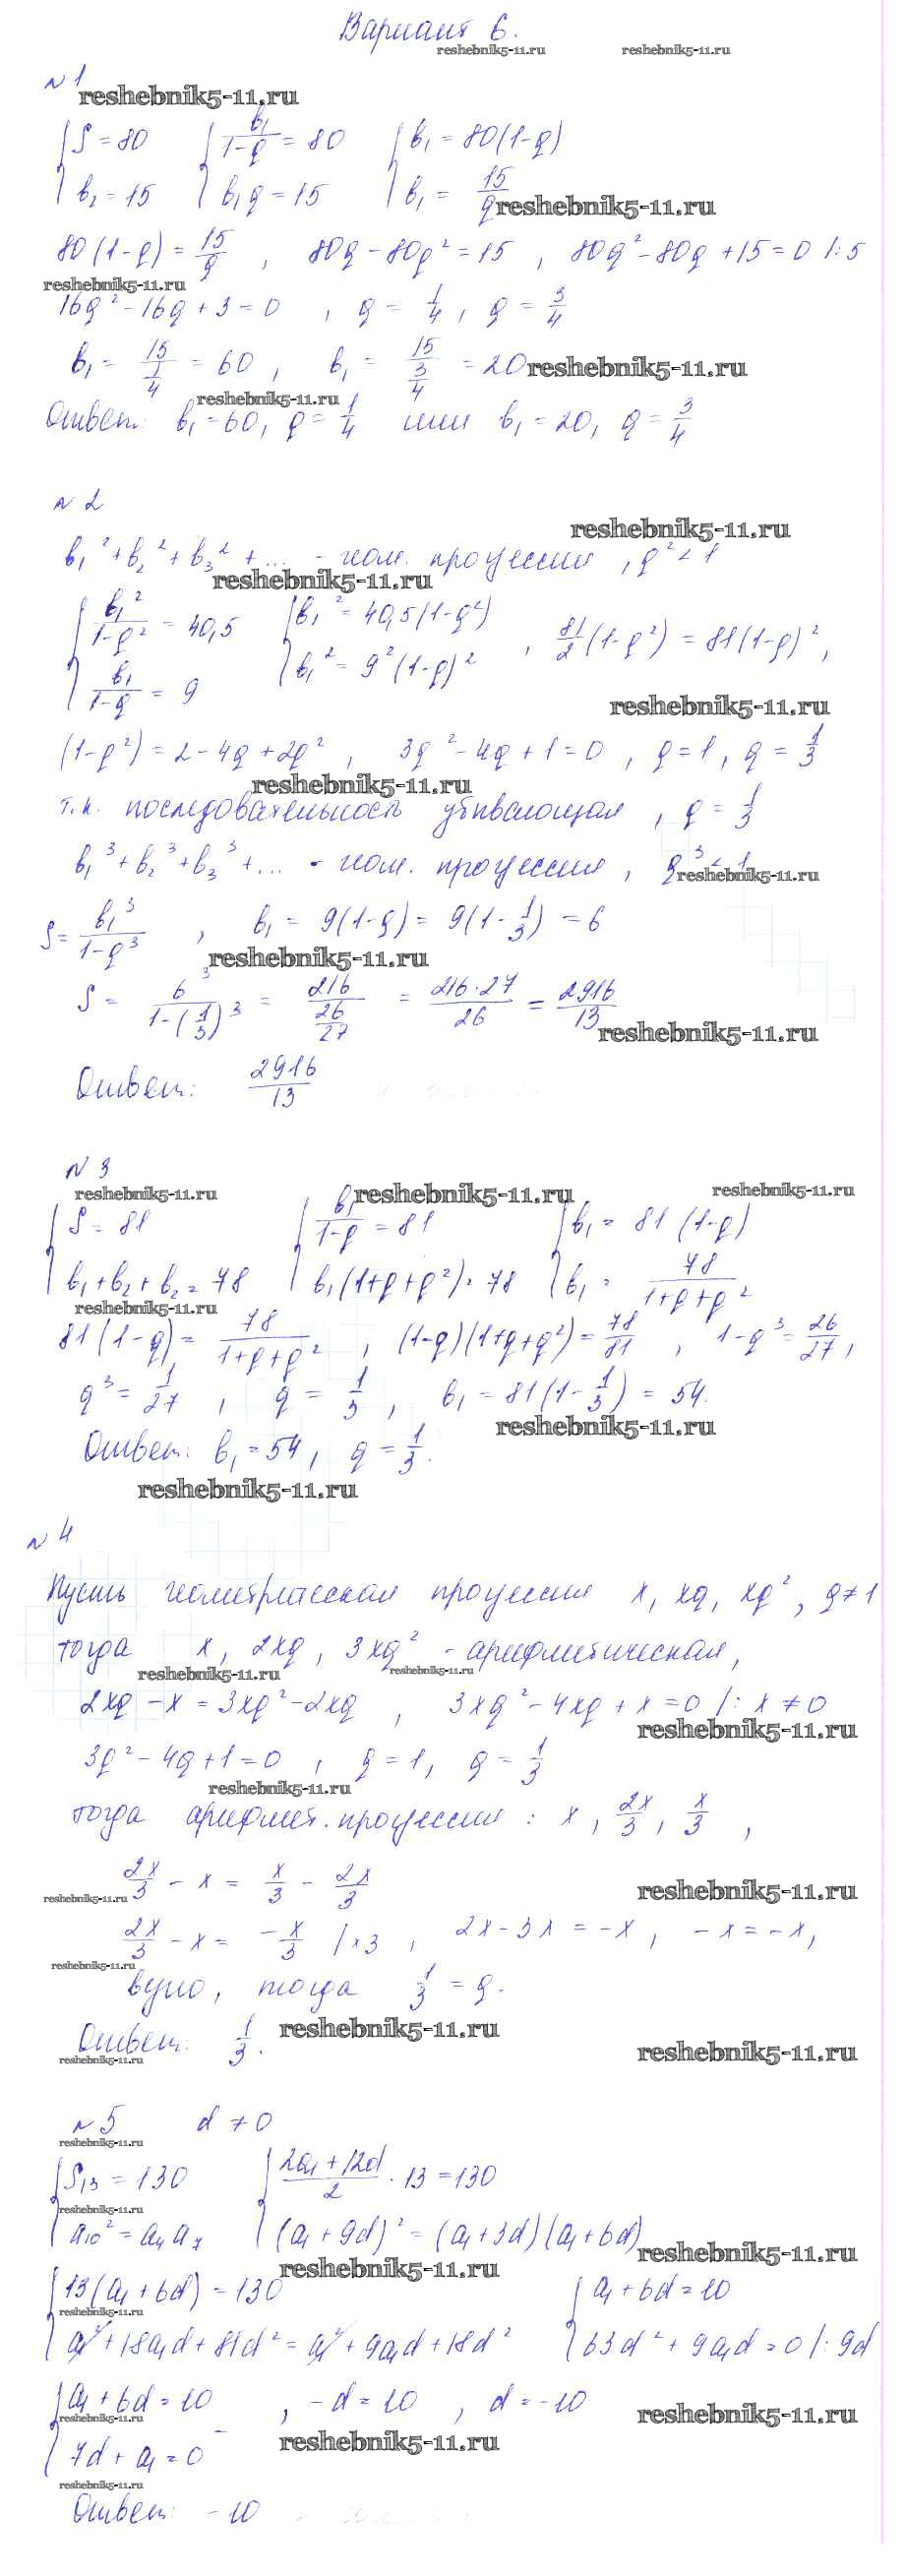 Вариант 6.
reshebnik5-11.ru reshebnik5-11.ru
№1
reshebnik5-11.ru
{ S = 80 { b₁/(1-q) = 80 { b₁ = 80(1-q)
{ b₂ = 15 { b₁q = 15 { b₁ = 15/q reshebnik5-11.ru
80(1-q) = 15/q , 80q - 80q² = 15 , 80q² - 80q + 15 = 0 |:5
reshebnik5-11.ru
16q² - 16q + 3 = 0 , q = 1/4 , q = 3/4
b₁ = 15/(1/4) = 60 , b₁ = 15/(3/4) = 20 reshebnik5-11.ru
reshebnik5-11.ru
Ответ: b₁ = 60, q = 1/4 или b₁ = 20, q = 3/4
№2
reshebnik5-11.ru
b₁² + b₂² + b₃² + ... - геом. прогрессия , q² < 1
reshebnik5-11.ru
{ b₁²/(1-q²) = 40,5 { b₁² = 40,5(1-q²) , 81/2 (1-q²) = 81(1-q)² ,
{ b₁/(1-q) = 9 { b₁² = 9²(1-q)²
reshebnik5-11.ru
(1-q²) = 2 - 4q + 2q² , 3q² - 4q + 1 = 0 , q = 1 , q = 1/3
reshebnik5-11.ru
т.к. последовательность убывающая , q = 1/3
b₁³ + b₂³ + b₃³ + ... - геом. прогрессия , q³ < 1
reshebnik5-11.ru
S = b₁³/(1-q³) , b₁ = 9(1-q) = 9(1-1/3) = 6
reshebnik5-11.ru
S = 6³/(1-(1/3)³) = 216/(26/27) = 216·27/26 = 2916/13
reshebnik5-11.ru
Ответ: 2916/13
№3
reshebnik5-11.ru reshebnik5-11.ru reshebnik5-11.ru
{ S = 81 { b₁/(1-q) = 81 { b₁ = 81(1-q)
{ b₁ + b₂ + b₂ = 78 { b₁(1+q+q²) = 78 { b₁ = 78/(1+q+q²)
reshebnik5-11.ru
81(1-q) = 78/(1+q+q²) , (1-q)(1+q+q²) = 78/81 , 1-q³ = 26/27 ,
q³ = 1/27 , q = 1/3 , b₁ = 81(1-1/3) = 54.
reshebnik5-11.ru
Ответ: b₁ = 54 , q = 1/3.
reshebnik5-11.ru
№4
Пусть геометрическая прогрессия x, xq, xq² , q≠1
тогда x, 2xq, 3xq² - арифметическая,
reshebnik5-11.ru reshebnik5-11.ru
2xq - x = 3xq² - 2xq , 3xq² - 4xq + x = 0 |: x ≠ 0
reshebnik5-11.ru
3q² - 4q + 1 = 0 , q = 1, q = 1/3
reshebnik5-11.ru
тогда арифмет. прогрессия : x , 2x/3 , x/3 ,
2x/3 - x = x/3 - 2x/3
reshebnik5-11.ru reshebnik5-11.ru
2x/3 - x = -x/3 |×3 , 2x - 3x = -x , -x = -x ,
reshebnik5-11.ru
тогда 1/3 = q.
Ответ: 1/3.
reshebnik5-11.ru
reshebnik5-11.ru
reshebnik5-11.ru
№5 d ≠ 0
reshebnik5-11.ru
{ S₁₃ = 130 { (2a₁ + 12d)/2 · 13 = 130
reshebnik5-11.ru
{ a₁₀² = a₄a₇ { (a₁ + 9d)² = (a₁ + 3d)(a₁ + 6d)
reshebnik5-11.ru
reshebnik5-11.ru
{ 13(a₁ + 6d) = 130 { a₁ + 6d = 10
reshebnik5-11.ru
{ a₁² + 18a₁d + 81d² = a₁² + 9a₁d + 18d² { 63d² + 9a₁d = 0 |: 9d
{ a₁ + 6d = 10 , -d = 10 , d = -10
reshebnik5-11.ru reshebnik5-11.ru
{ 7d + a₁ = 0 reshebnik5-11.ru
reshebnik5-11.ru
Ответ: -10